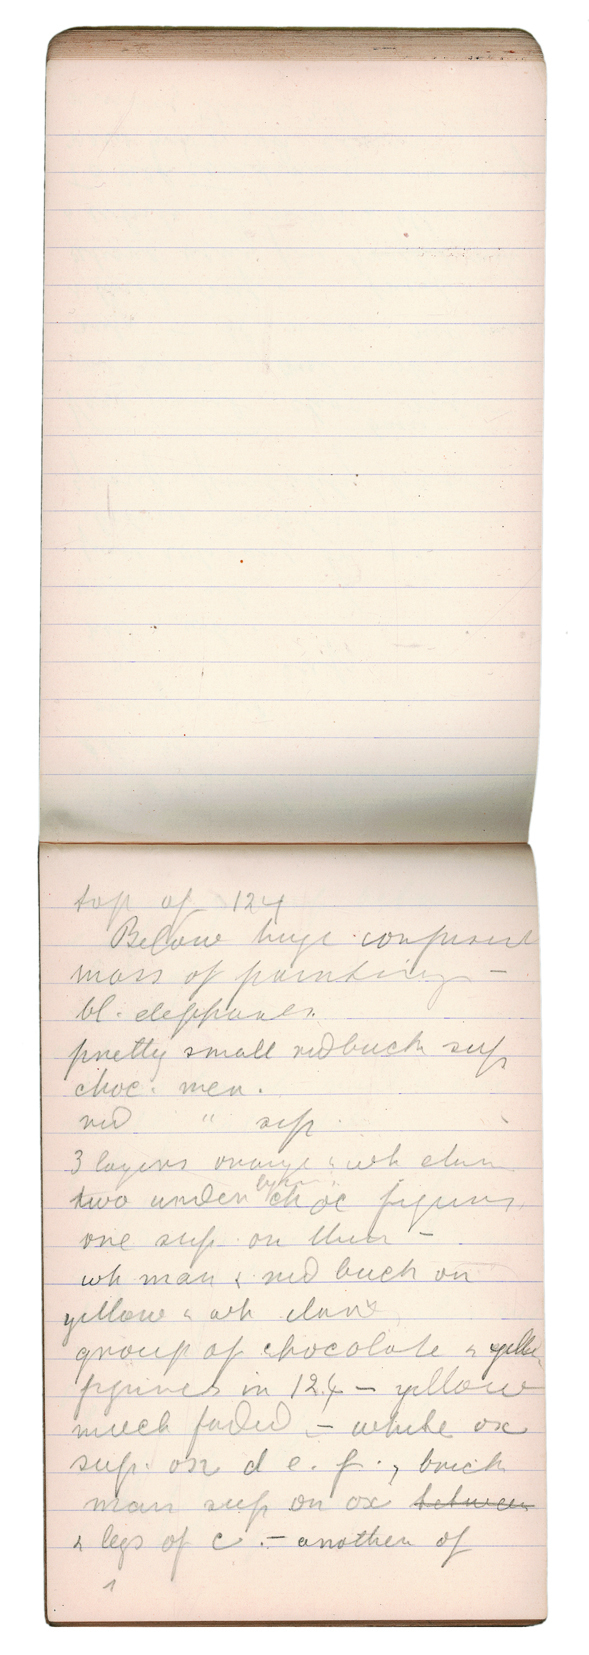 top of 124
Below huge confused
mass of paintings –
bl. elephants.
pretty small redbuck sup
choc. men.
red " sup.
3 layers orange & wh elan
two under choc figures
one sup on them –
wh man & red buck on
yellow & wh eland
group of chocolate & yello
figures in 124 – yellow
much faded – white ox
sup. on d e. f., brick
man sup on ox between
& legs of c. – another of